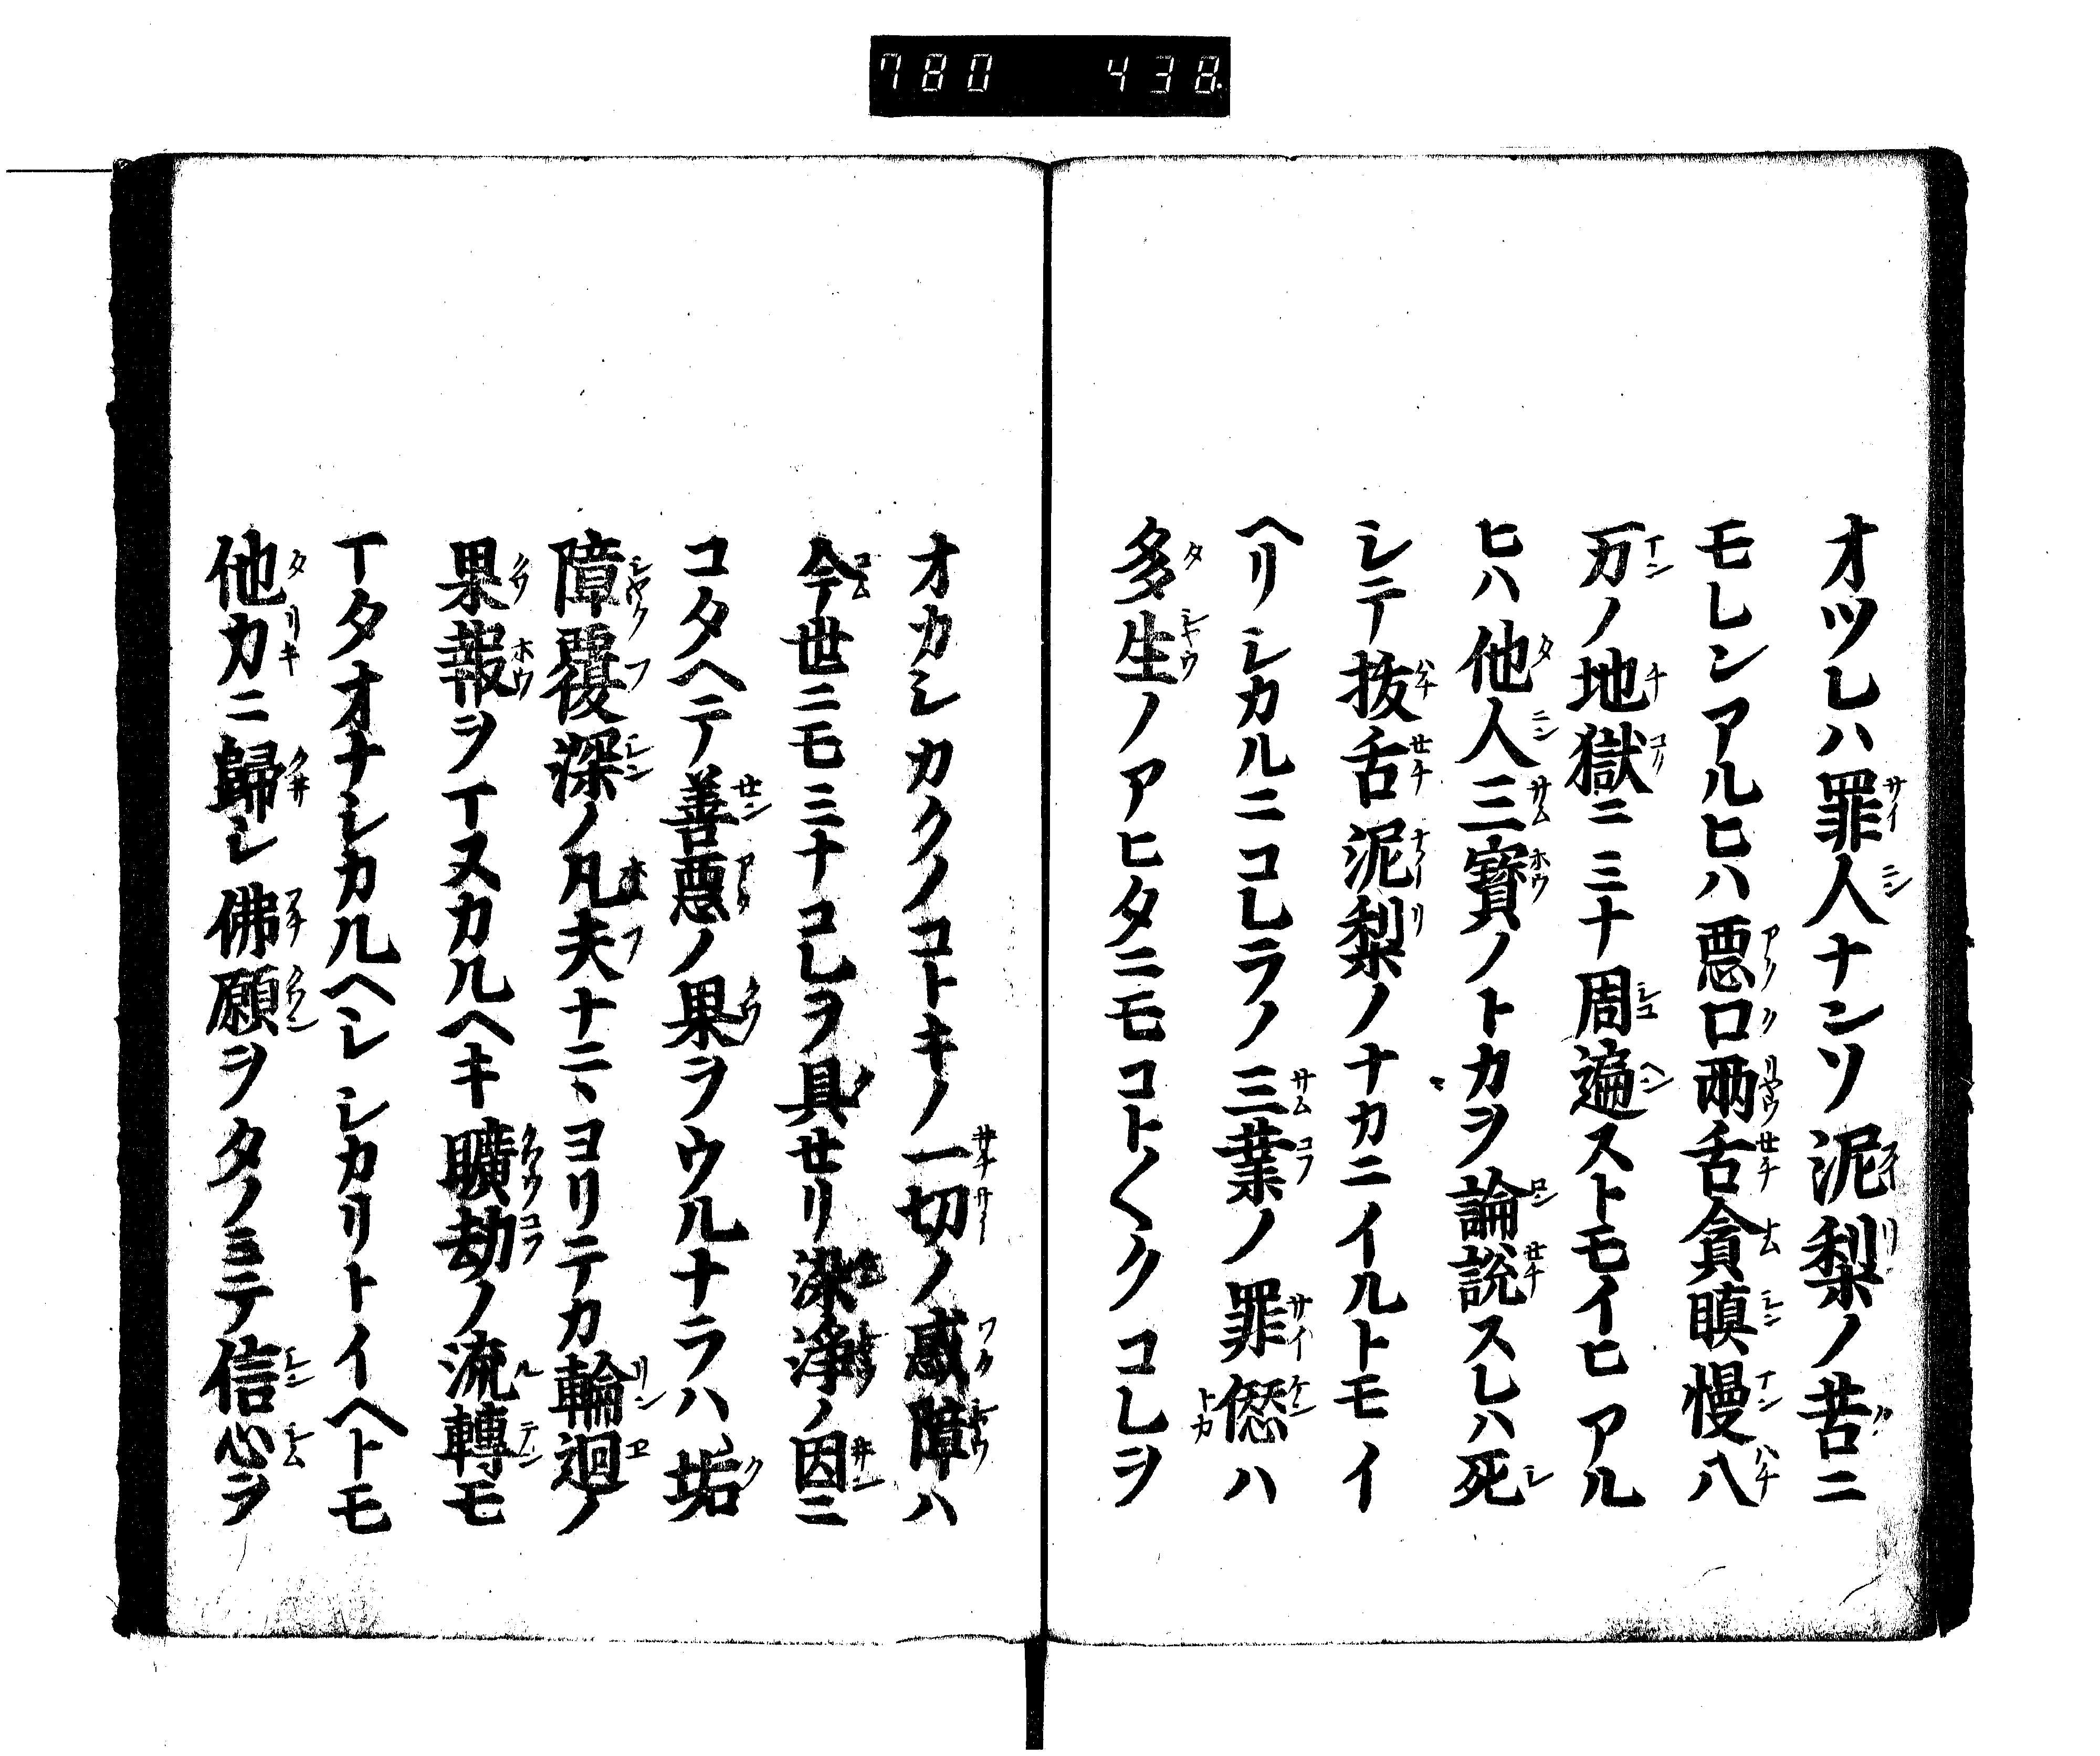 780 438
オツレハ罪人ナンソ泥梨ノ苦ニ
モレンアルヒハ悪口両舌貪瞋慢八
万ノ地獄ニミナ周遍ストモイヒアル
ヒハ他人三寳ノトカヲ論説スレハ死
シテ抜舌泥梨ノナカニイルトモイ
ヘリシカルニコレラノ三業ノ罪𠎝ハ
多生ノアヒタニモコト〱クコレヲ
オカシカクノコトキノ一切ノ惑障ハ
今世ニモミナコレヲ具セリ染浄ノ因ニ
コタヘテ善悪ノ果ヲウルナラハ垢
障覆深ノ凡夫ナニヽヨリテカ輪廻ノ
果報ヲイヌカルヘキ曠劫ノ流轉モ
イタオナシカルヘシシカリトイヘトモ
他力ニ歸シ佛願ヲタノミテ信心ヲ